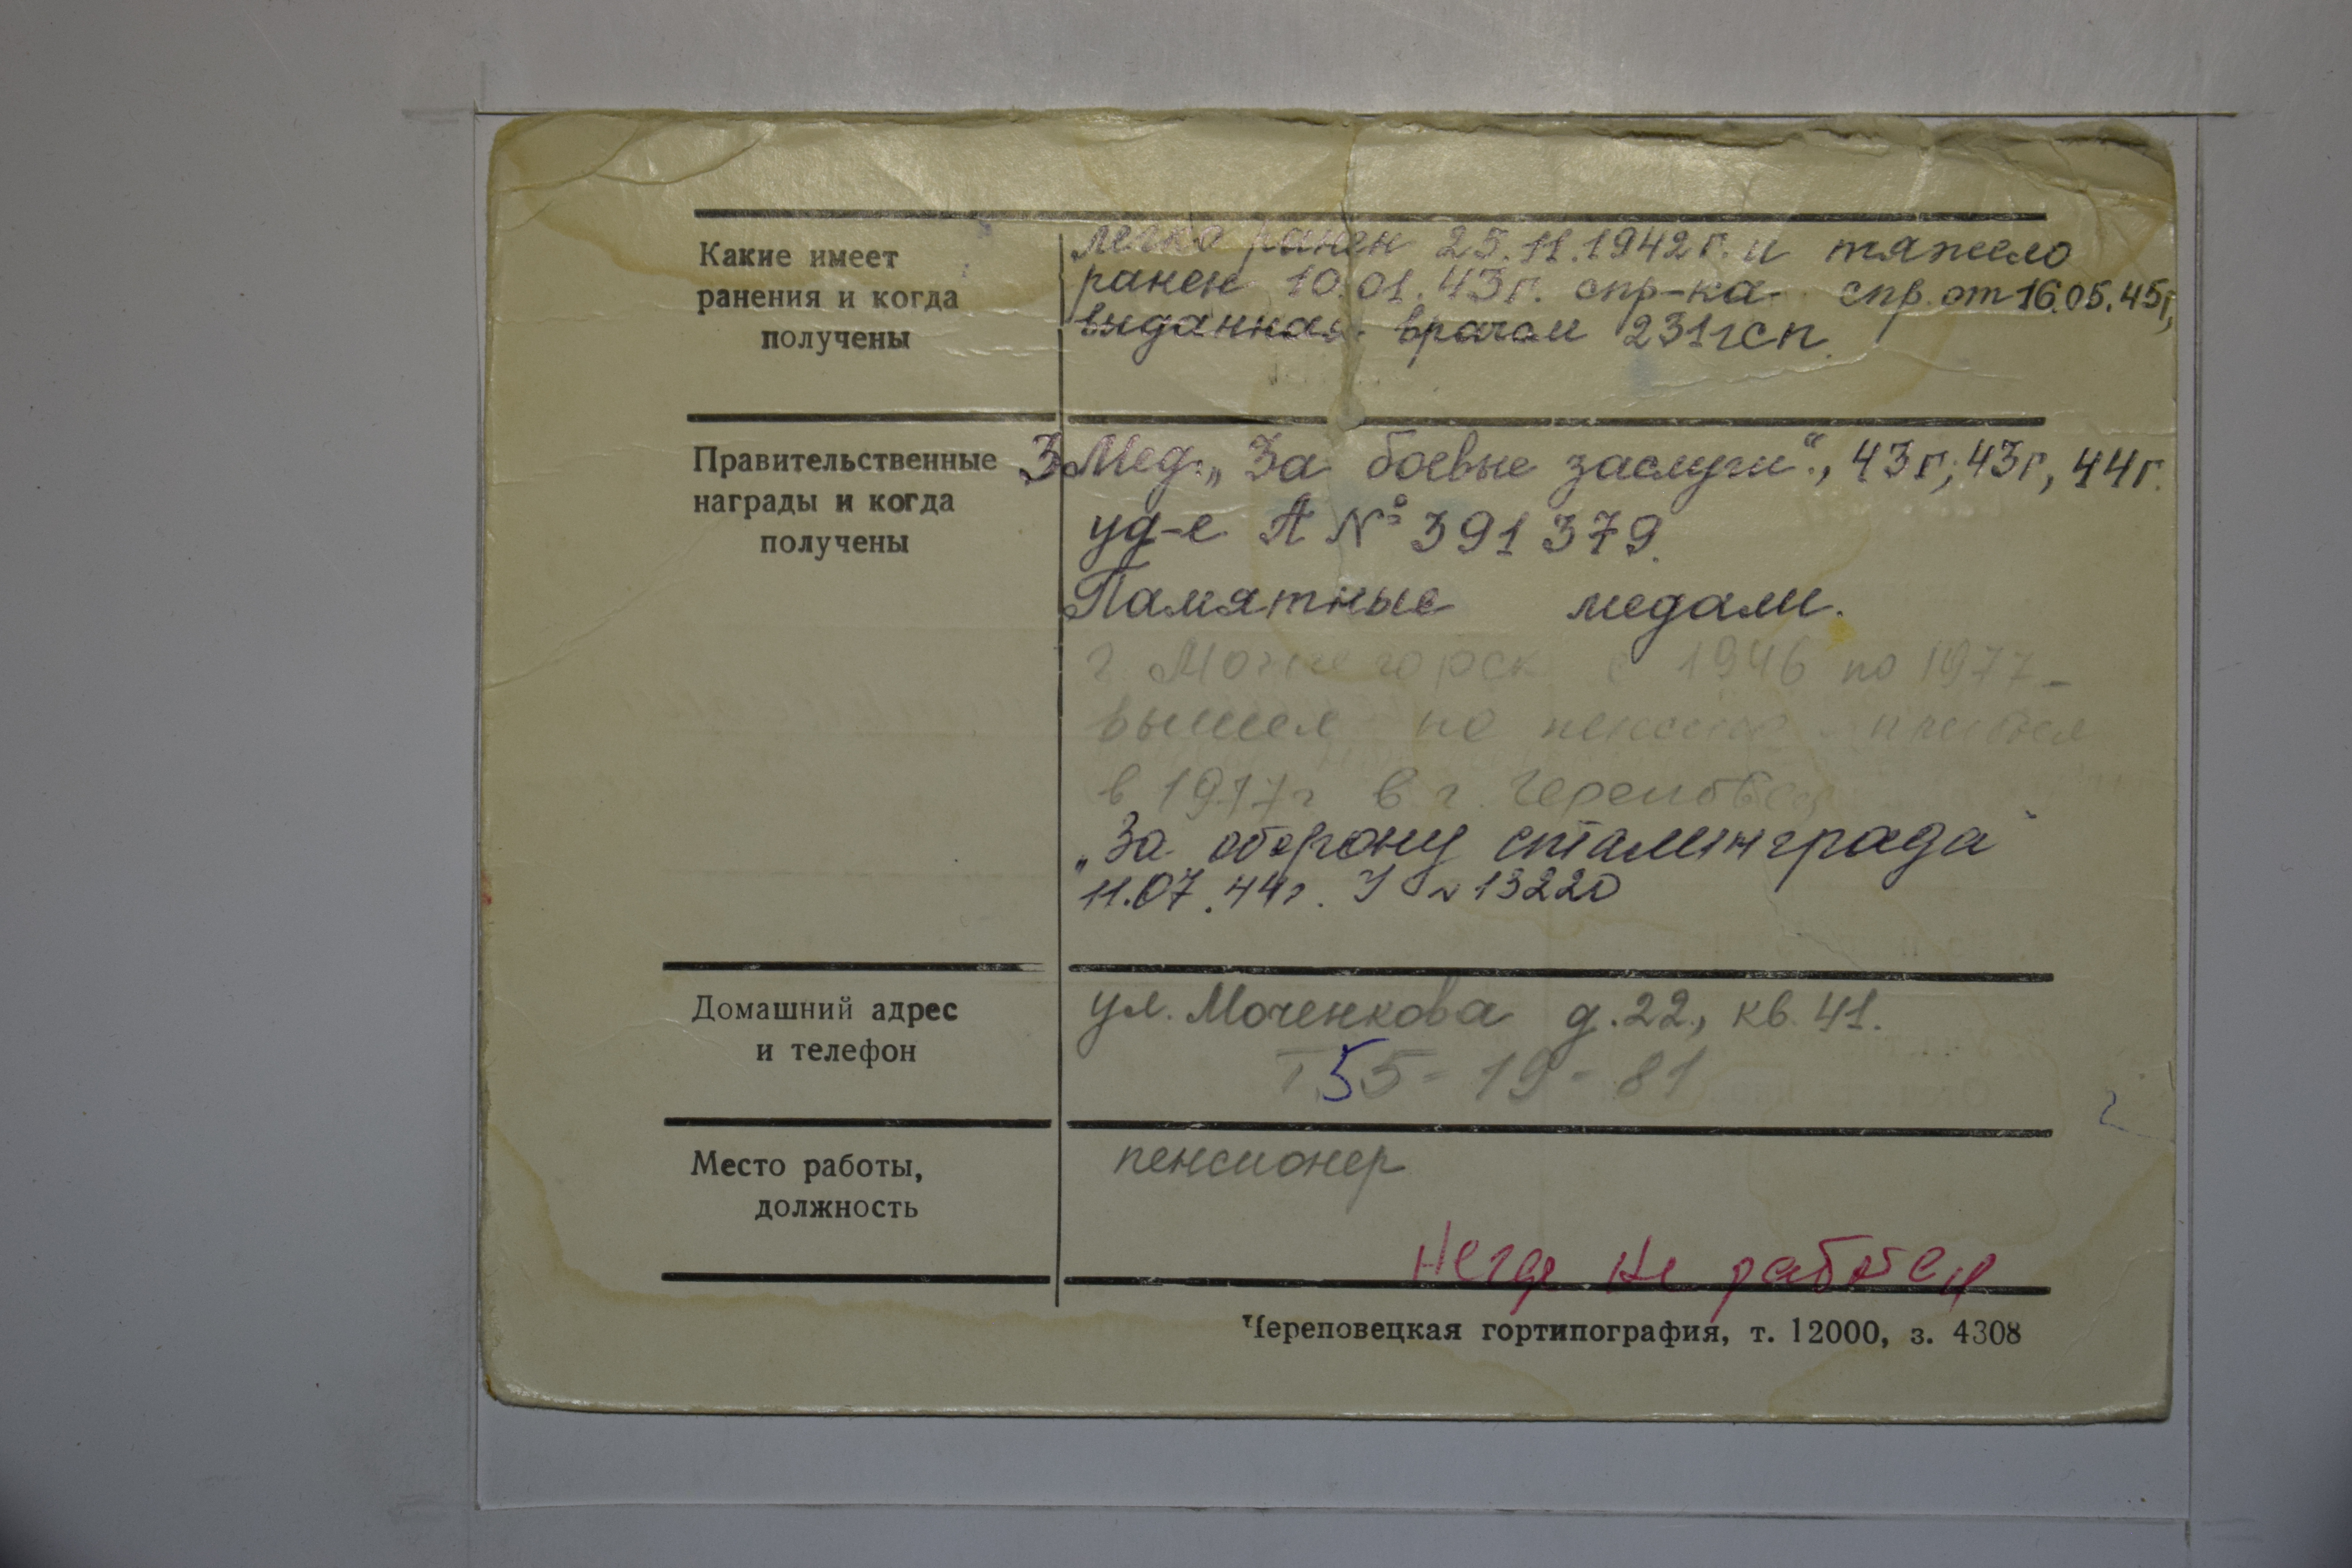 Какие имеет
ранения и когда
получены
легко ранен 25.11.1942г. и тяжело
ранен 10.01.43г. спр-ка спр. от 16.05.45г,
выданная врачом 231гсп.
Правительственные
награды и когда
получены
3 Мед. „За боевые заслуги“, 43г, 43г, 44г.
уд-е А № 391379.
Памятные медали.
г. Мончегорск с 1946 по 1977 -
вышел на пенсию прибыл
в 1977г в г. Череповец
„За оборону сталинграда“
11.07.44г. У № 13220
Домашний адрес
и телефон
ул. Моченкова д.22, кв. 41.
Т. 55-19-81
Место работы,
должность
пенсионер
Негде не работ
Череповецкая гортипография, т. 12000, з. 4308